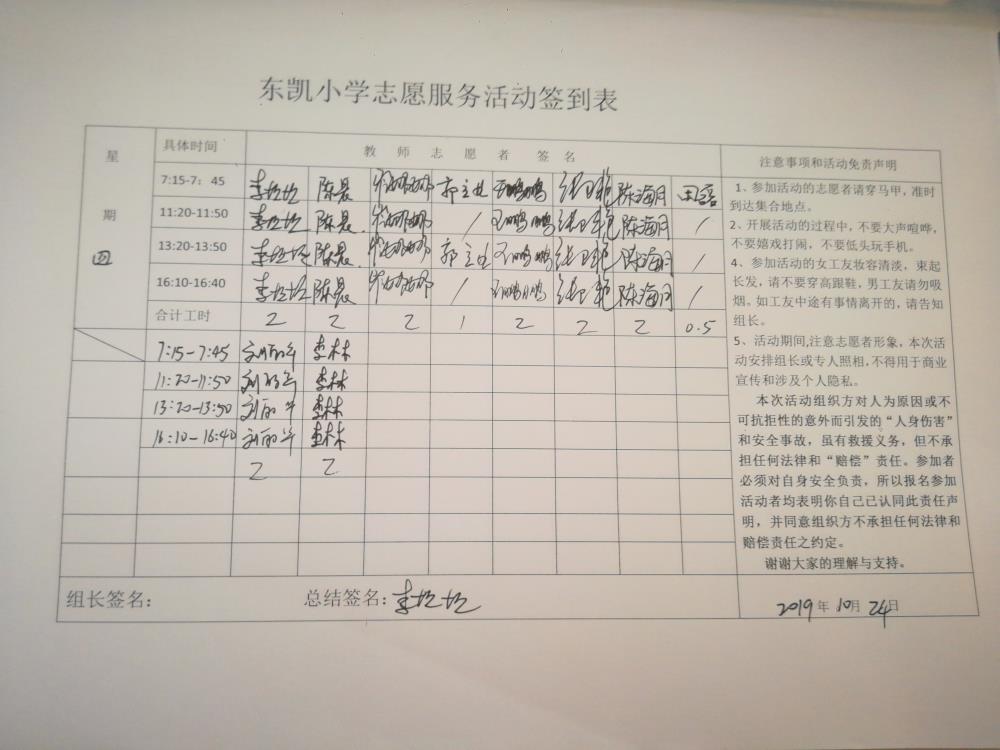 东凯小学志愿服务活动签到表
星期四
具体时间 教师志愿者签名
7:15-7：45 陈晨 陈海月
11:20-11:50 陈晨 / 陈海月 /
13:20-13:50 陈晨 陈海月 /
16:10-16:40 陈晨 / 陈海月 /
合计工时 2 2 2 1 2 2 2 0.5
7:15-7:45 李林
11:20-11:50 李林
13:20-13:50 李林
16:10-16:40 李林
2 2
注意事项和活动免责声明
1、参加活动的志愿者请穿马甲，准时
到达集合地点。
2、开展活动的过程中，不要大声喧哗，
不要嬉戏打闹，不要低头玩手机。
4、参加活动的女工友妆容清淡，束起
长发，请不要穿高跟鞋，男工友请勿吸
烟。如工友中途有事情离开的，请告知
组长。
5、活动期间,注意志愿者形象，本次活
动安排组长或专人照相,不得用于商业
宣传和涉及个人隐私。
本次活动组织方对人为原因或不
可抗拒性的意外而引发的“人身伤害”
和安全事故，虽有救援义务，但不承
担任何法律和“赔偿”责任。参加者
必须对自身安全负责，所以报名参加
活动者均表明你自己已认同此责任声
明，并同意组织方不承担任何法律和
赔偿责任之约定。
谢谢大家的理解与支持。
组长签名： 总结签名：
2019年10月24日